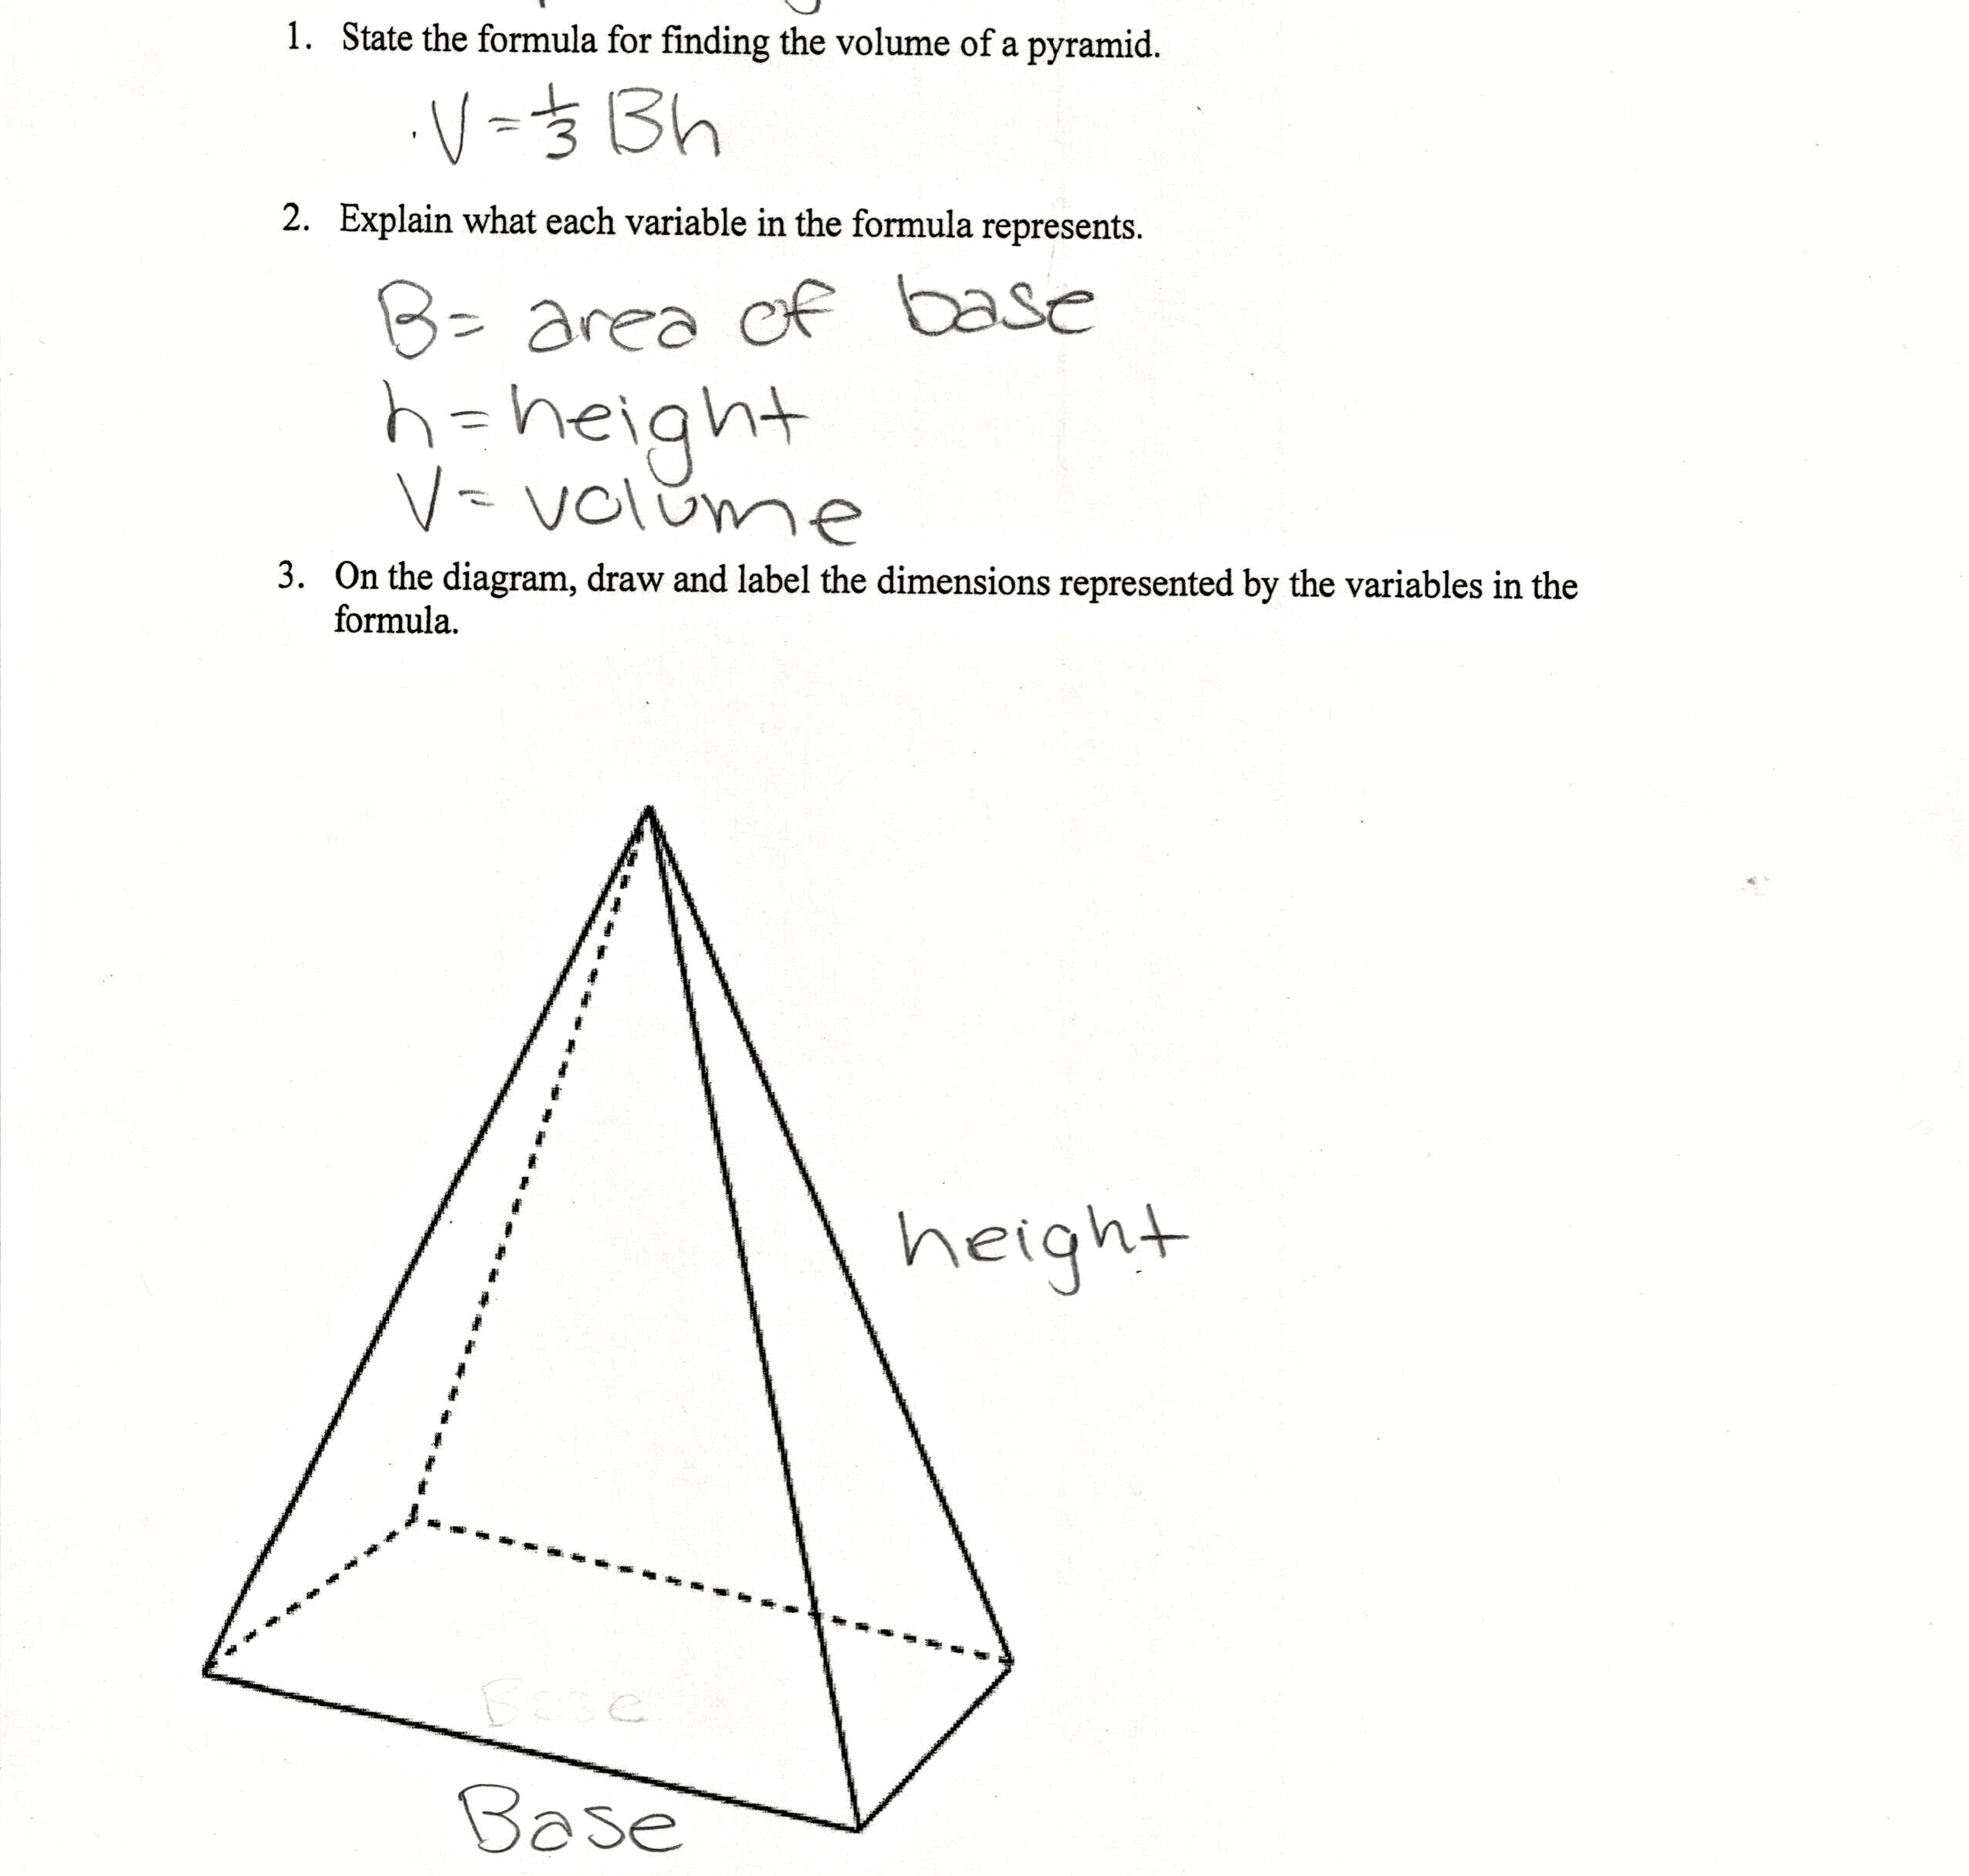 1. State the formula for finding the volume of a pyramid.
V = 1/3 Bh
2. Explain what each variable in the formula represents.
B = area of base
h = height
V = volume
3. On the diagram, draw and label the dimensions represented by the variables in the
formula.
height
Base
Base